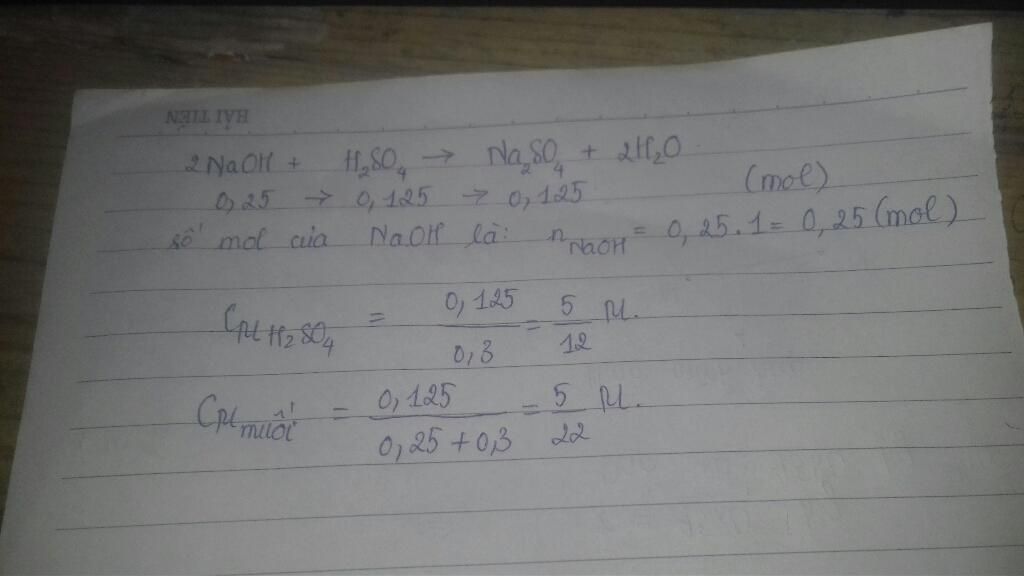 HẢI TIẾN
2NaOH + H₂SO₄ → Na₂SO₄ + 2H₂O
0,25 → 0,125 → 0,125 (mol)
số mol của NaOH là: n NaOH = 0,25.1 = 0,25 (mol)
CM H₂SO₄ = 0,125/0,3 = 5/12 M.
CM muối = 0,125/(0,25+0,3) = 5/22 M.